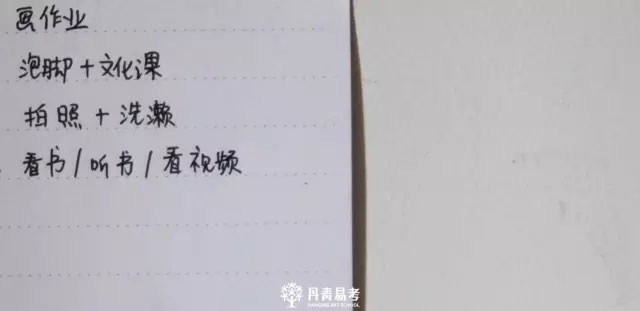 画作业
泡脚+文化课
拍照+洗漱
看书/听书/看视频
丹青易考
DANQING ART SCHOOL